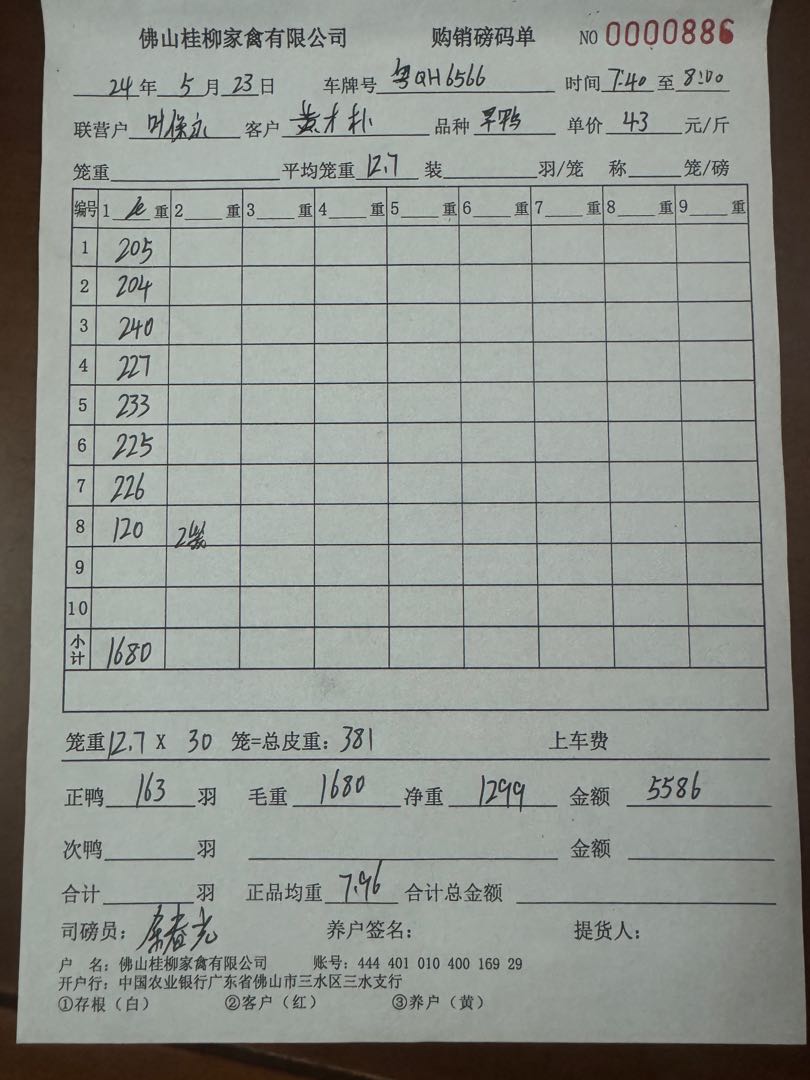 佛山桂柳家禽有限公司 购销磅码单 NO 0000886
24年 5月 23日 车牌号 粤QH6566 时间 7:40 至 8:00
联营户 叶保永 客户 黄才朴 品种 旱鸭 单价 43 元/斤
笼重 平均笼重 12.7 装 羽/笼 称 笼/磅
编号 1 毛 重 2 重 3 重 4 重 5 重 6 重 7 重 8 重 9 重
1 205
2 204
3 240
4 227
5 233
6 225
7 226
8 120 2笼
9
10
小计 1680
笼重 12.7 X 30 笼=总皮重: 381 上车费
正鸭 163 羽 毛重 1680 净重 1299 金额 5586
次鸭 羽 金额
合计 羽 正品均重 7.96 合计总金额
司磅员: 养户签名: 提货人:
户 名: 佛山桂柳家禽有限公司 账号: 444 401 010 400 169 29
开户行: 中国农业银行广东省佛山市三水区三水支行
①存根（白） ②客户（红） ③养户（黄）